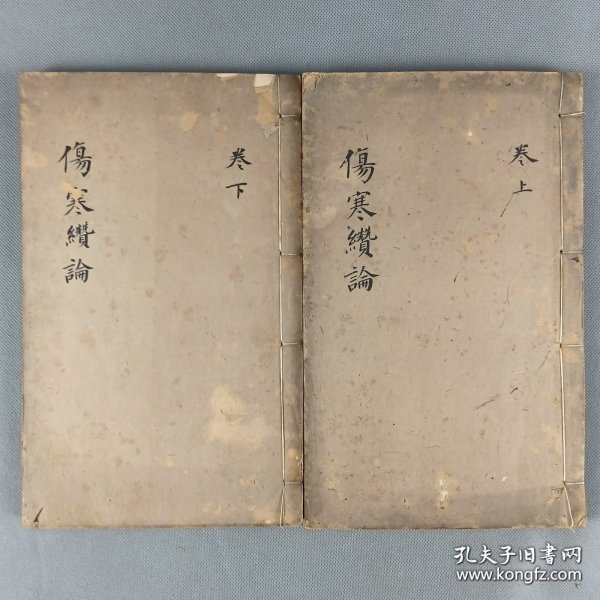 卷上
傷寒纘論
卷下
傷寒纘論
孔夫子旧书网
www.kongfz.com